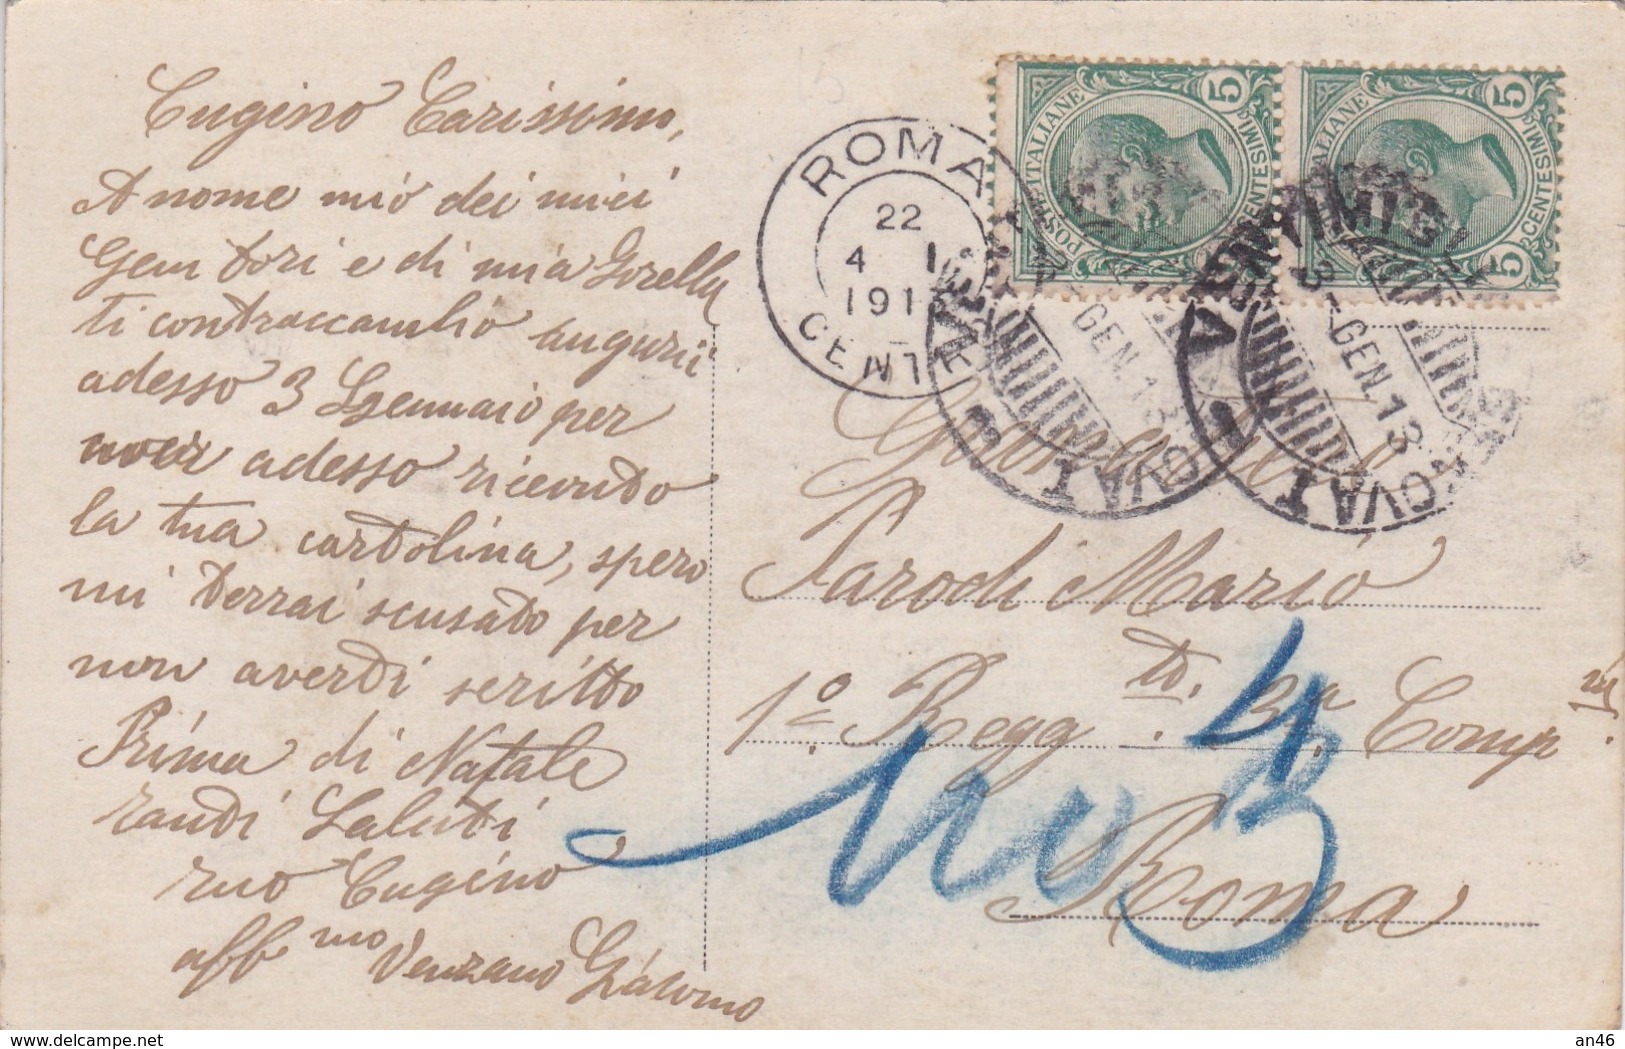 Cugino Carissimo,
A nome mio dei miei
Genitori e di mia Sorella
ti contraccambio augurii
adesso 3 Gennaio per
aver adesso ricevuto
la tua cartolina, spero
mi terrai scusato per
non averti scritto
Prima di Natale
tanti Saluti
tuo Cugino
aff mo Venzano Giacomo
POSTE ITALIANE
5 CENTESIMI 5
POSTE ITALIANE
5 CENTESIMI 5
ROMA
22
4 1
191
CENTRO
GEN.13
GEN.13
Parodi Mario
1º Regg.to 3ª Comp
Roma
an46